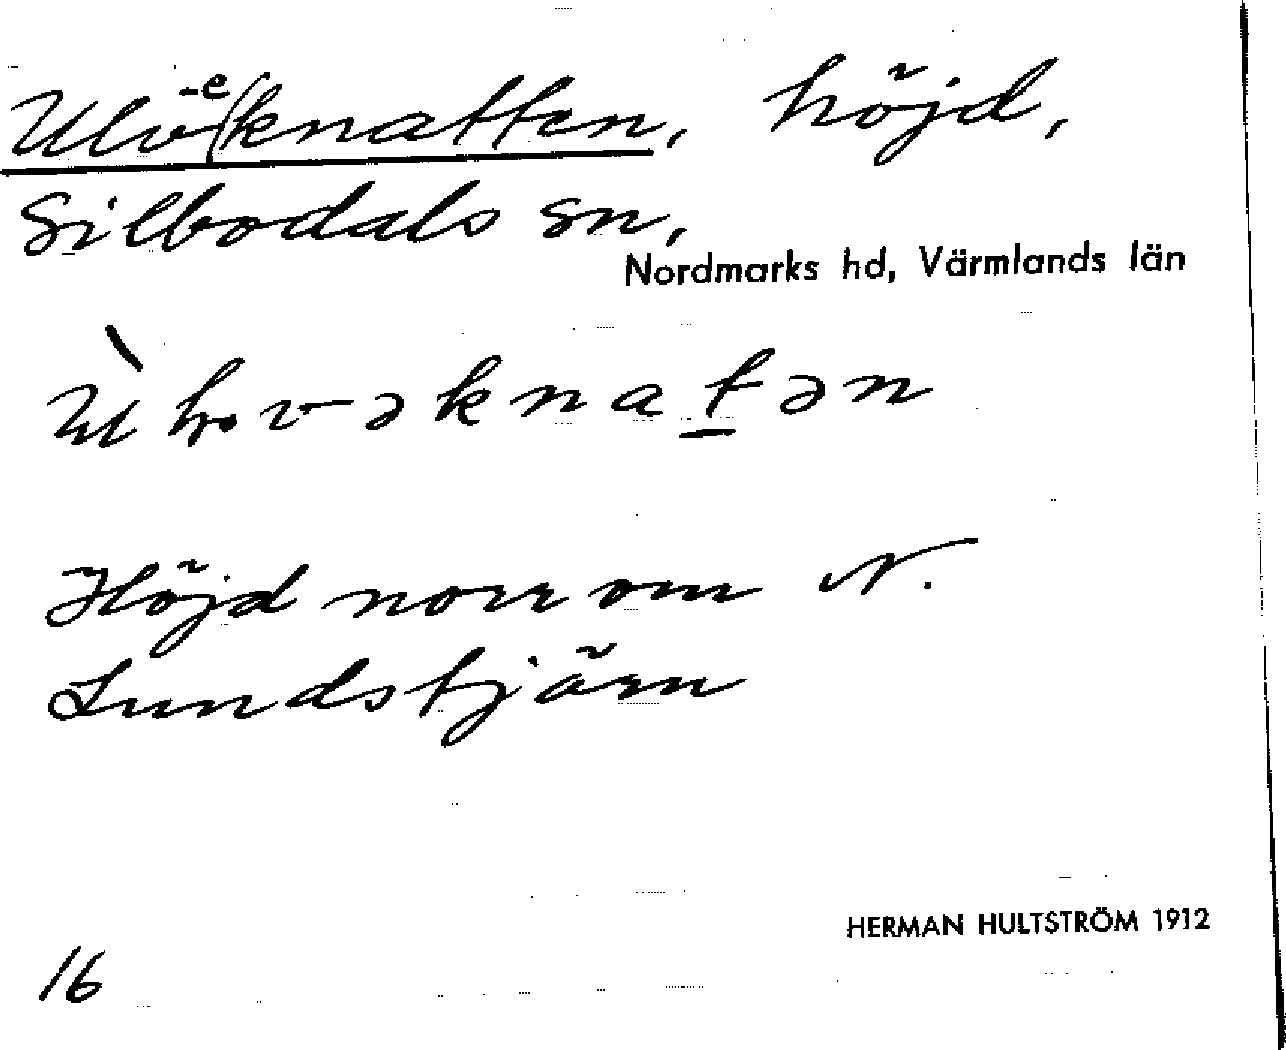 Ulv-e/knatten, höjd,
Silbodals sn,
Nordmarks hd, Värmlands län
Höjd norr om N.
Lundstjärn
HERMAN HULTSTRÖM 1912
16